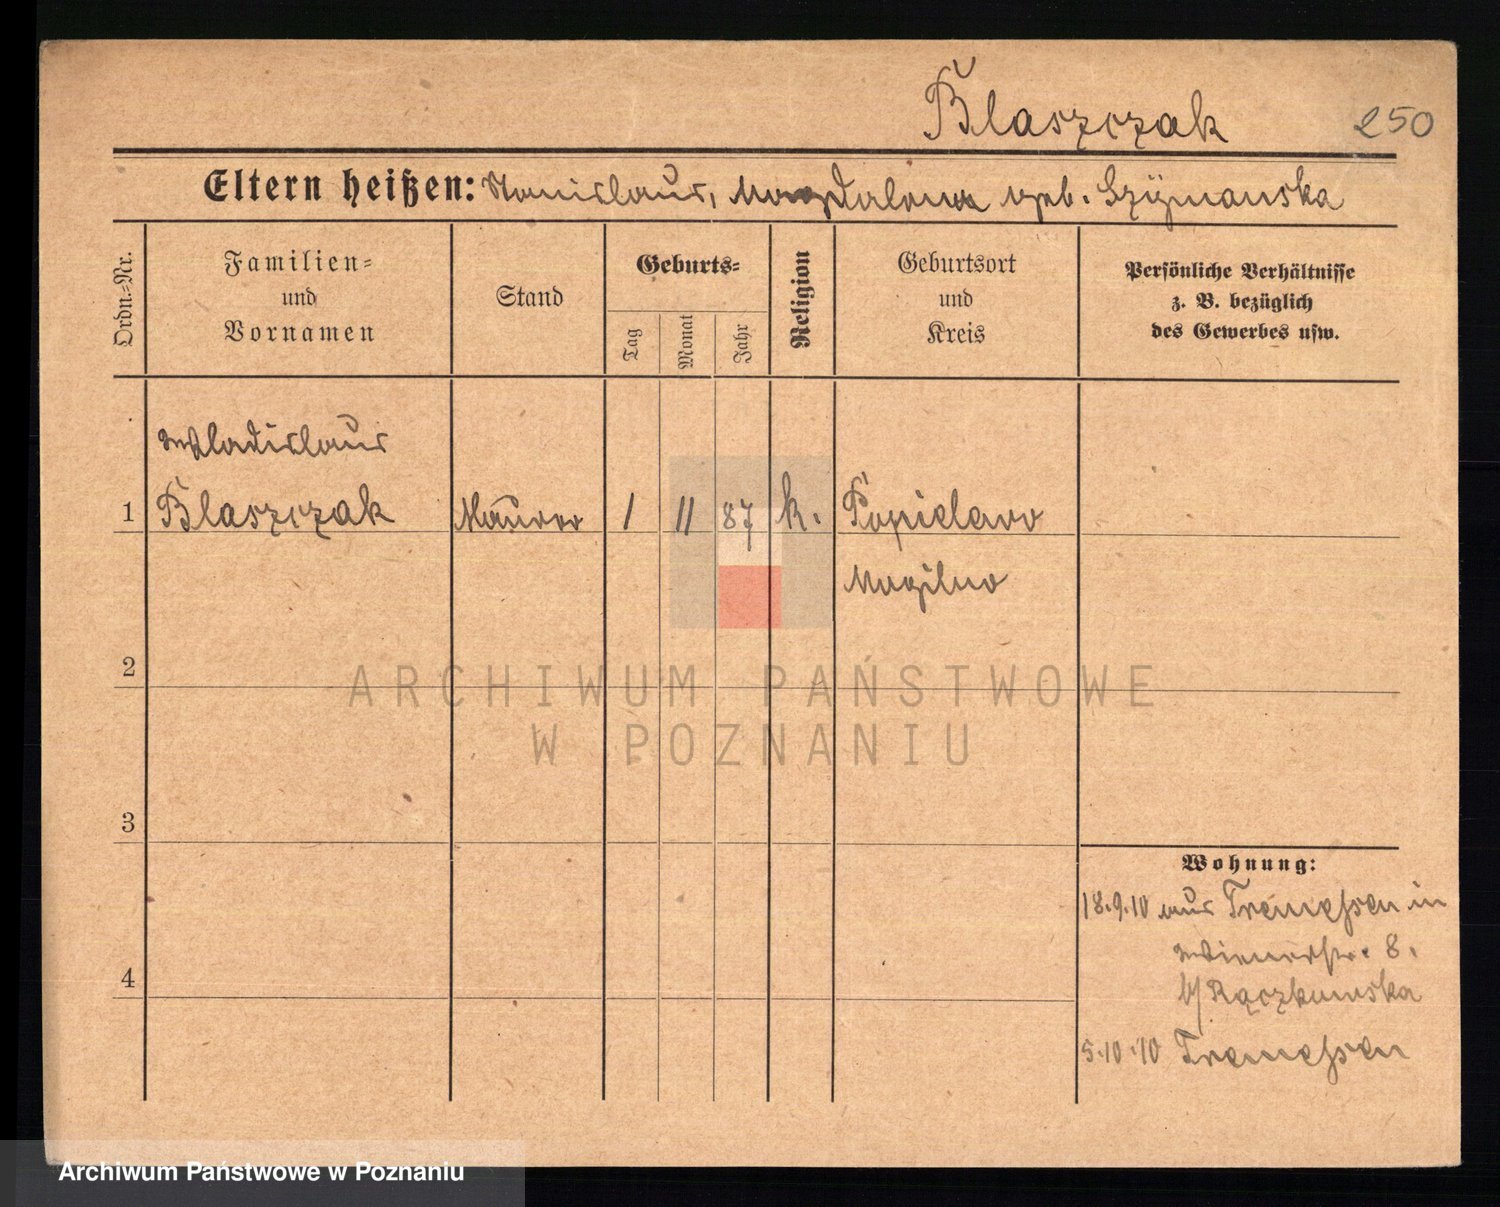 Blaszczak 250
Eltern heißen: Stanislaus, Magdalena geb. Szymanska
Ordn.=Nr.
Familien=
und
Vornamen
Stand
Geburts=
Tag
Monat
Jahr
Religion
Geburtsort
und
Kreis
Persönliche Verhältnisse
z. B. bezüglich
des Gewerbes usw.
Wladislaus
1 Blaszczak Maurer 1 11 87 k. Popielewo
Mogilno
2
3
4
Wohnung:
18.9.10 aus Tremessen in
Wienerstr. 8.
b/ Rączkowska
5.10.10 Tremessen
ARCHIWUM PAŃSTWOWE
W POZNANIU
Archiwum Państwowe w Poznaniu